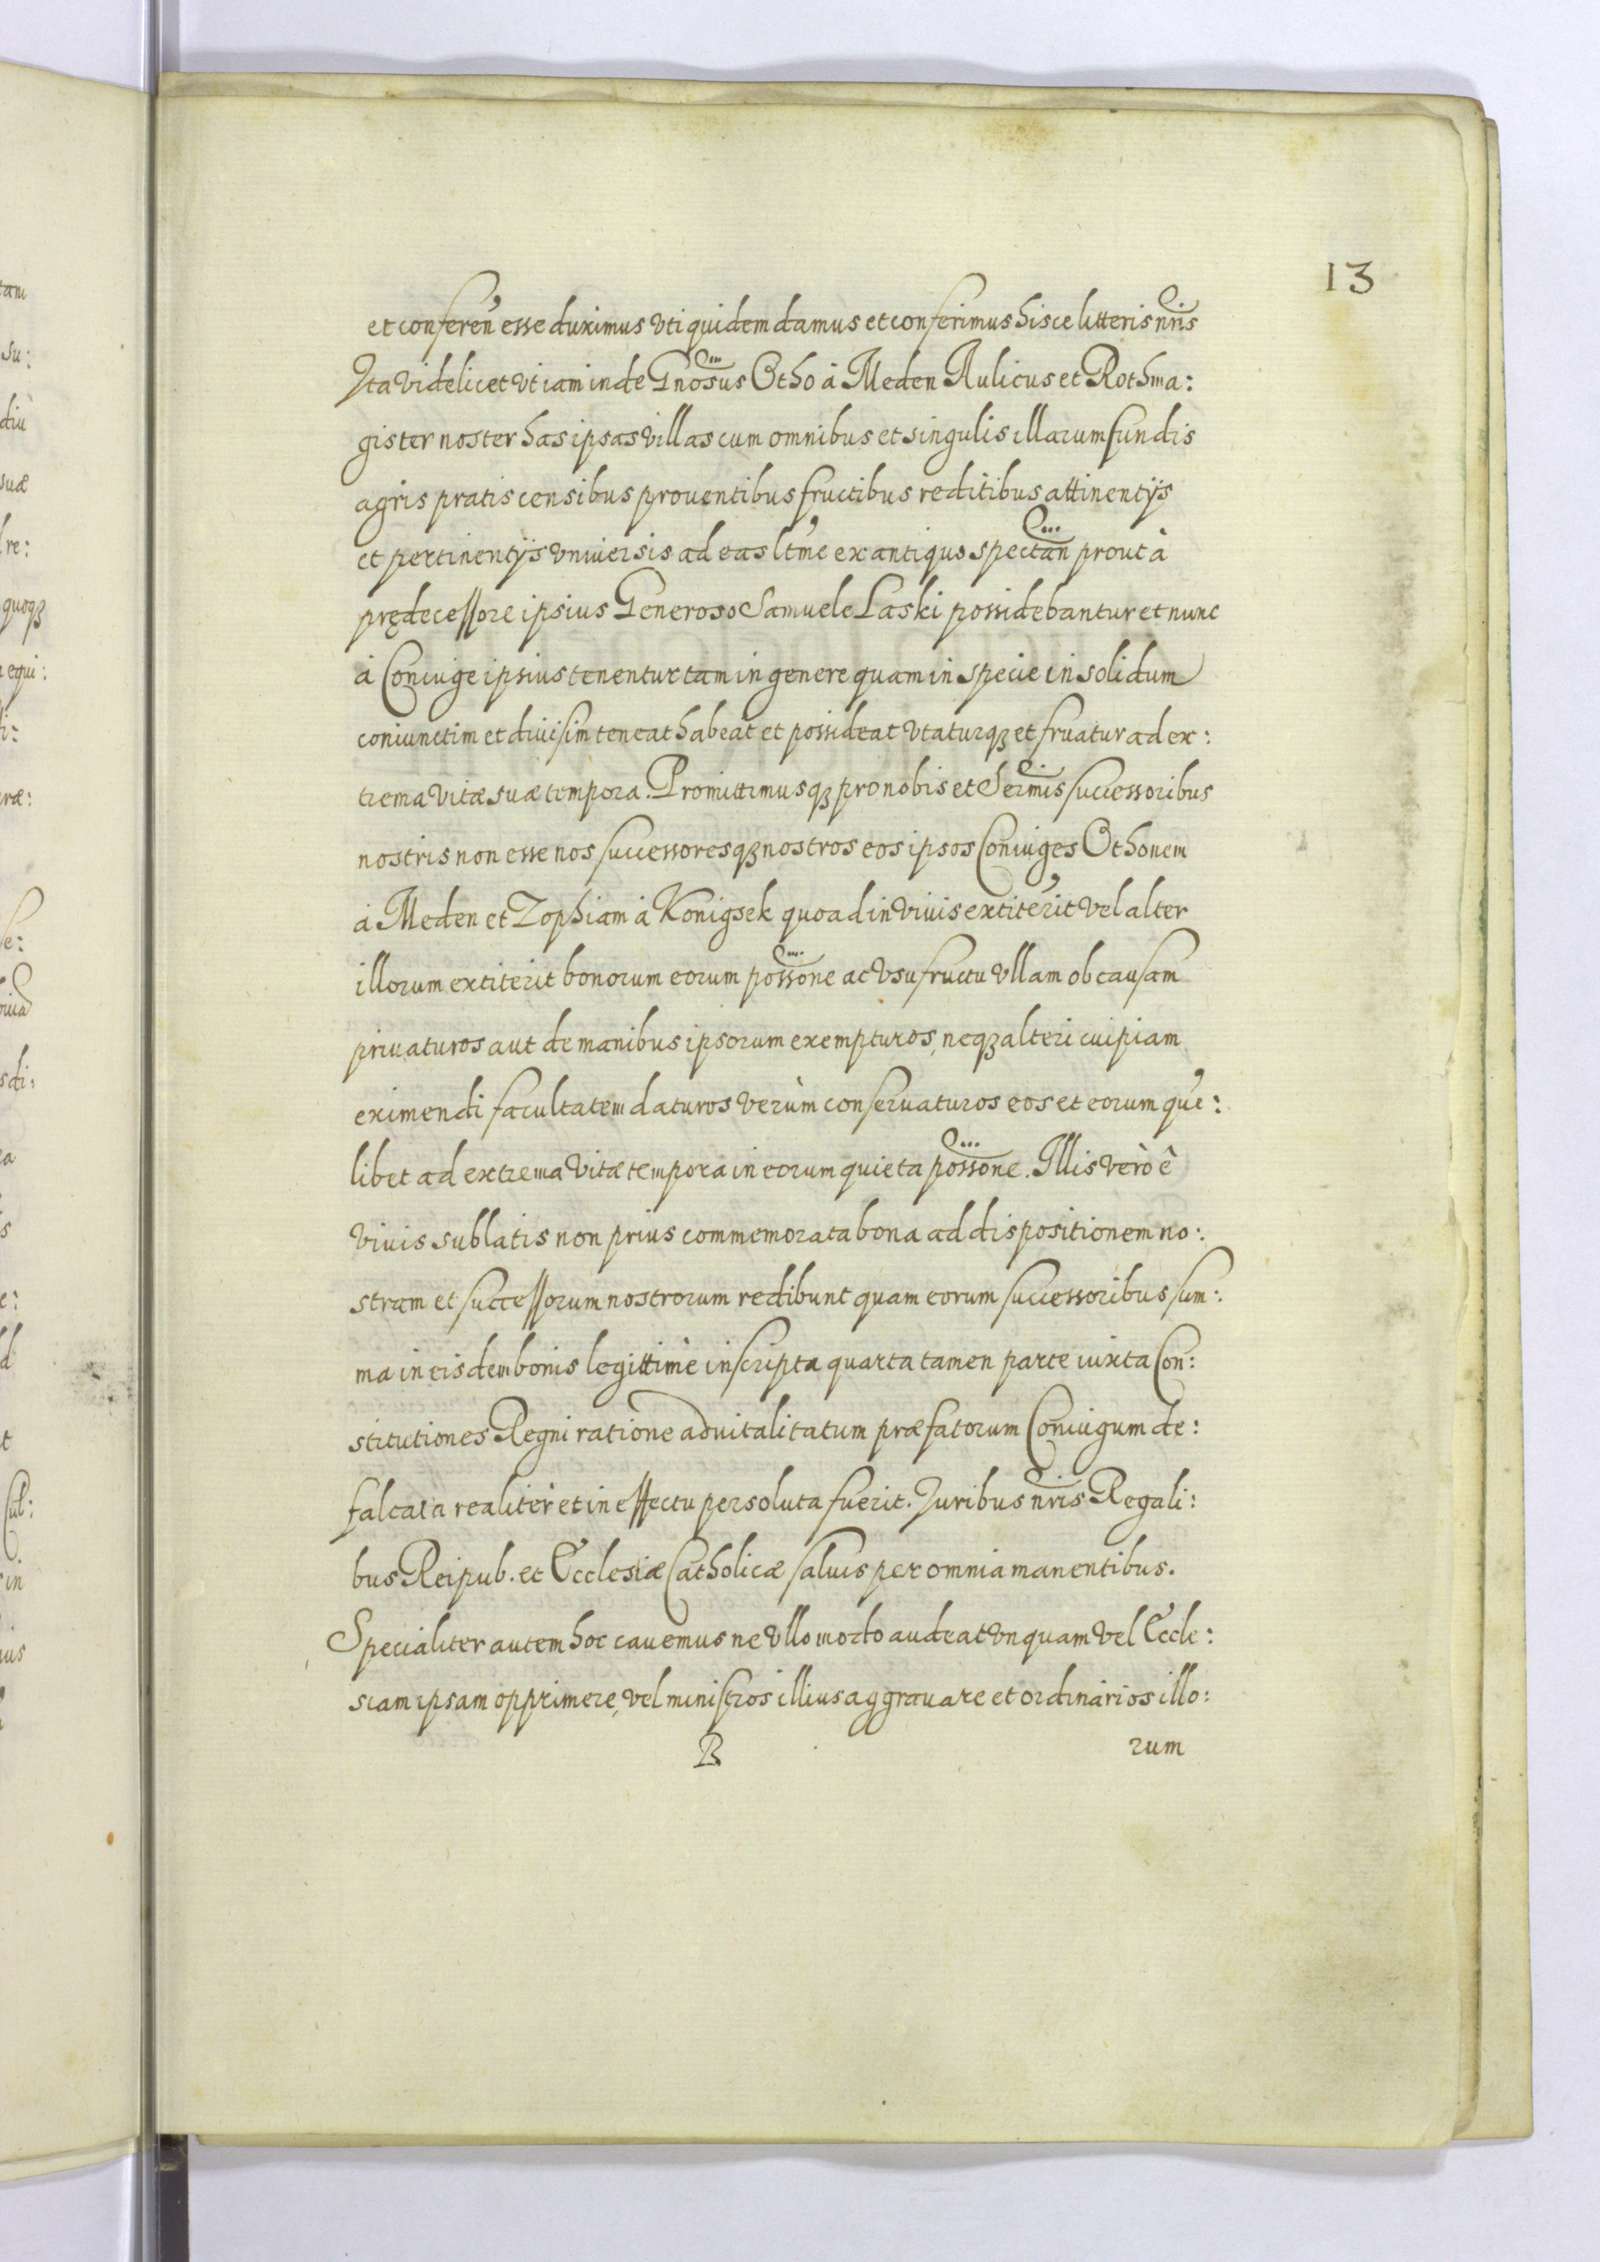 13
et conferen̄ esse duximus vti quidem damus et conferimus hisce litteris nr̄is
Ita videlicet vt iam inde Gnosus Otho à Meden Aulicus et Rothma:
gister noster has ipsas villas cum omnibus et singulis illarum fundis
agris pratis censibus prouentibus fructibus reditibus attinentÿs
et pertinentÿs vniuersis ad eas ltme ex antiquo spectan̄ prout à
prędecessore ipsius Generoso Samuele Laski possidebantur et nunc
à Coniuge ipsius tenentur tam in genere quam in specie in solidum
coniunctim et diuisim teneat habeat et possideat vtaturqꝫ et fruatur ad ex:
trema vitæ suæ tempora. Promittimusqꝫ pro nobis et Sermis successoribus
nostris non esse nos successoresqꝫ nostros eos ipsos Coniuges Othonem
à Meden et Zophiam à Konigsek quoad in viuis extiterit vel alter
illorum extiterit bonorum eorum possone ac vsufructu vllam ob causam
priuaturos aut de manibus ipsorum exempturos, neqꝫ alteri cuipiam
eximendi facultatem daturos verùm conseruaturos eos et eorum que:
libet ad extrema vitæ tempora in eorum quieta possone. Illis verò è
viuis sublatis non prius commemorata bona ad dispositionem no:
stram et successorum nostrorum redibunt quam eorum successoribus sum:
ma in eisdem bonis legittimè inscripta quarta tamen parte iuxta Con:
stitutiones Regni ratione aduitalitatum præfatorum Coniugum de:
falcata realiter et in effectu persoluta fuerit. Iuribus nr̄is Regali:
bus Reipub. et Ecclesiæ Catholicæ saluis per omnia manentibus.
Specialiter autem hoc cauemus ne vllo modo audeat vnquam vel Eccle:
siam ipsam opprimere, vel ministros illius aggrauare et ordinarios illo:
B rum